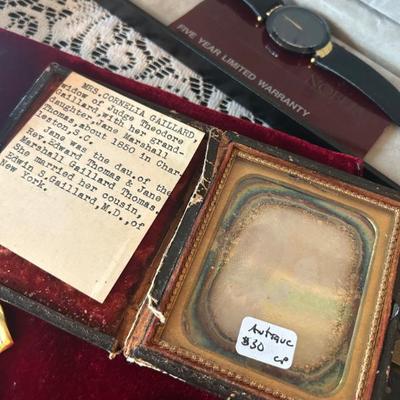 MRS. CORNELIA GAILLARD
widow of Judge Theodore
Gaillard, with her grand-
daughter, Jane Marshall
Thomas, about 1850 in Char-
leston, S.C.
Jane was the dau. of the
Rev. Edward Thomas & Jane
Marshall Gaillard Thomas.
She married her cousin,
Edwin S. Gaillard, M.D., of
New York.
Antique
$30
FIVE YEAR LIMITED WARRANTY